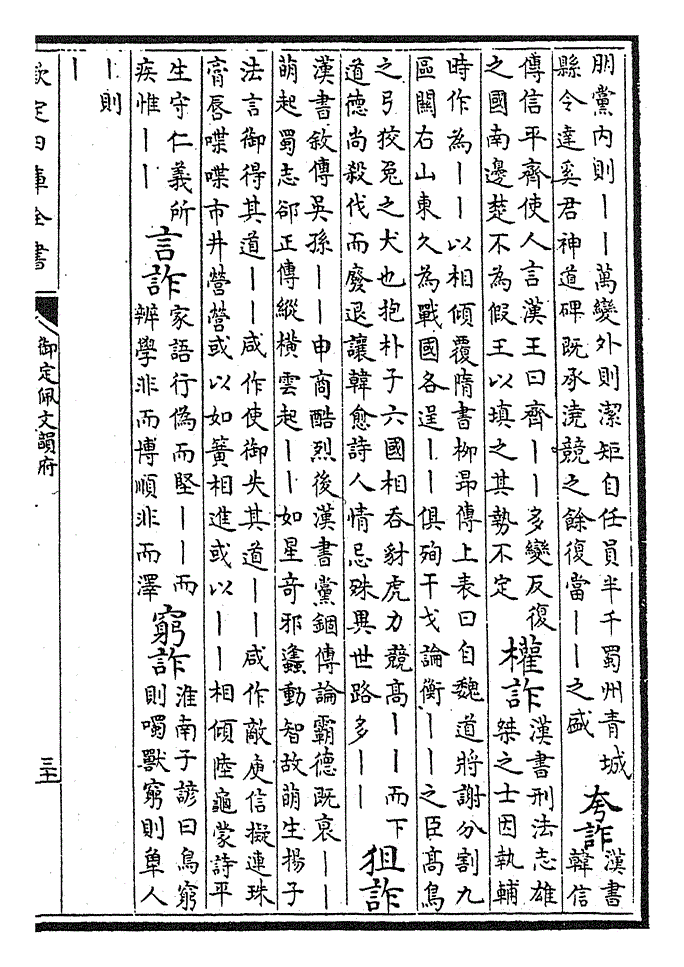 朋黨内則丨丨萬變外則潔矩自任員半千蜀州青城
縣令達奚君神道碑既承澆競之餘復當丨丨之盛
夸詐
漢書
韓信
傳信平齊使人言漢王曰齊丨丨多變反復
之國南邊楚不為假王以填之其勢不定
權詐
漢書刑法志雄
桀之士因執輔
時作為丨丨以相傾覆隋書柳昂傳上表曰自魏道將謝分割九
區關右山東久為戰國各逞丨丨俱殉干戈論衡丨丨之臣髙鳥
之弓狡兎之犬也抱朴子六國相吞豺虎力競髙丨丨而下
道徳尚殺伐而廢退讓韓愈詩人情忌殊異世路多丨丨
狙詐
漢書敘傳吳孫丨丨申商酷烈後漢書黨錮傳論霸德既衰丨丨
萌起蜀志郤正傳縱橫雲起丨丨如星奇邪蠭動智故萌生揚子
法言御得其道丨丨咸作使御失其道丨丨咸作敵庾信擬連珠
膏唇喋喋市井營營或以如簧相進或以丨丨相傾陸龜蒙詩平
生守仁義所
疾惟丨丨
言詐
家語行偽而堅丨丨而
辨學非而博順非而澤
窮詐
淮南子諺曰鳥窮
則噣獸窮則人
丨則
丨
欽定四庫全書
御定佩文韻府
三十